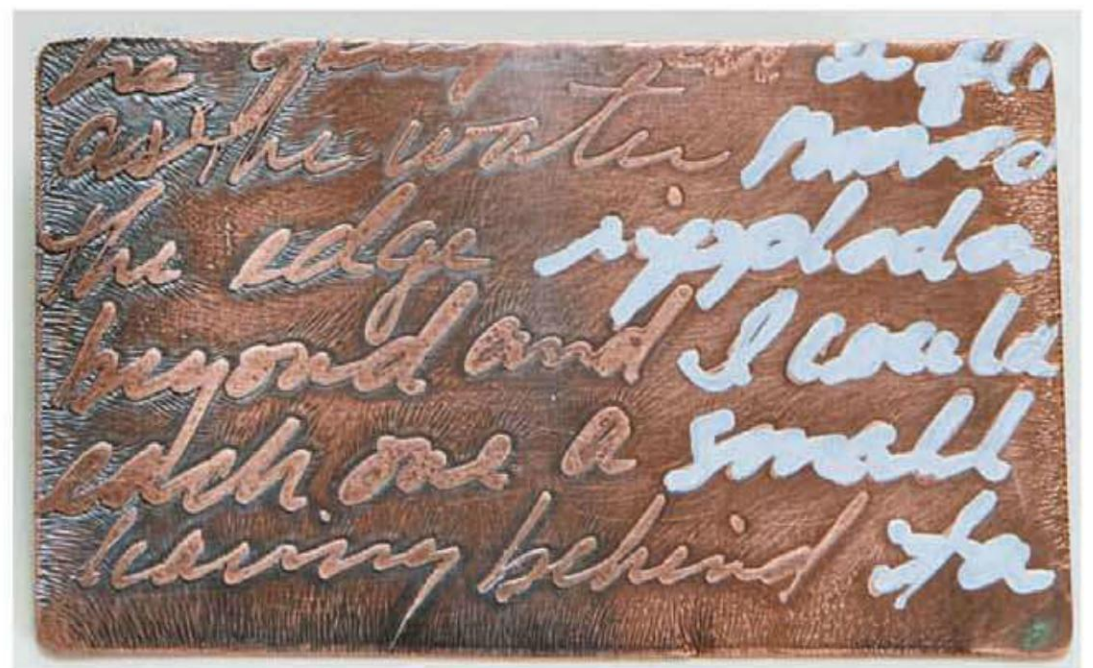 he
as the water
the edge rippled a
beyond and I could
each one a small
leaving behind